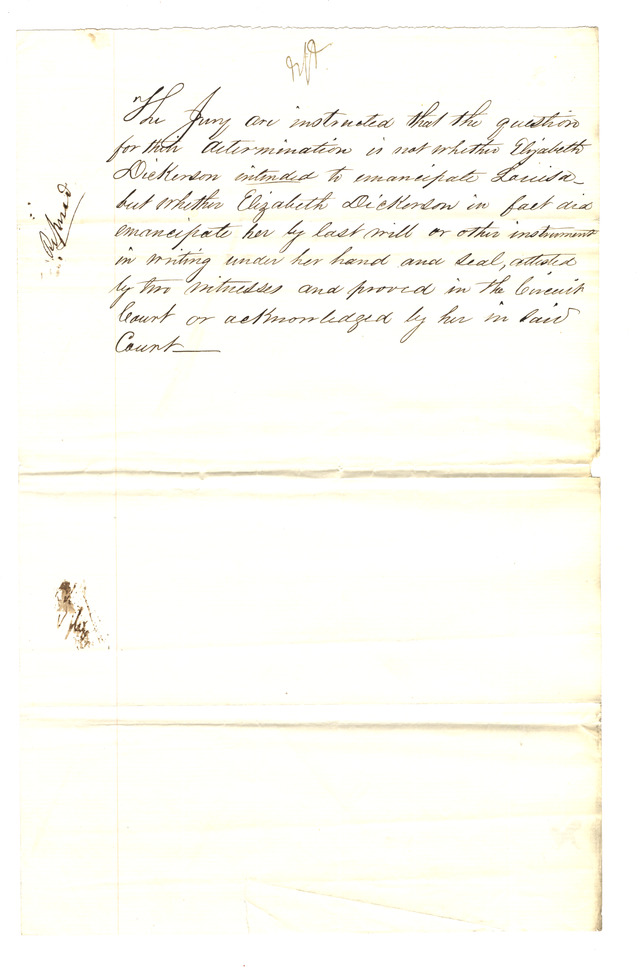 The Jury are instructed that the question
for their determination is not whether Elizabeth
Dickerson intended to emancipate Louisa
but whether Elizabeth Dickerson in fact did
emancipate her by last will or other instrument
in writing under her hand and seal, attested
by two witnesses and proved in the Circuit
Court or acknowledged by her in said
Court
Refused